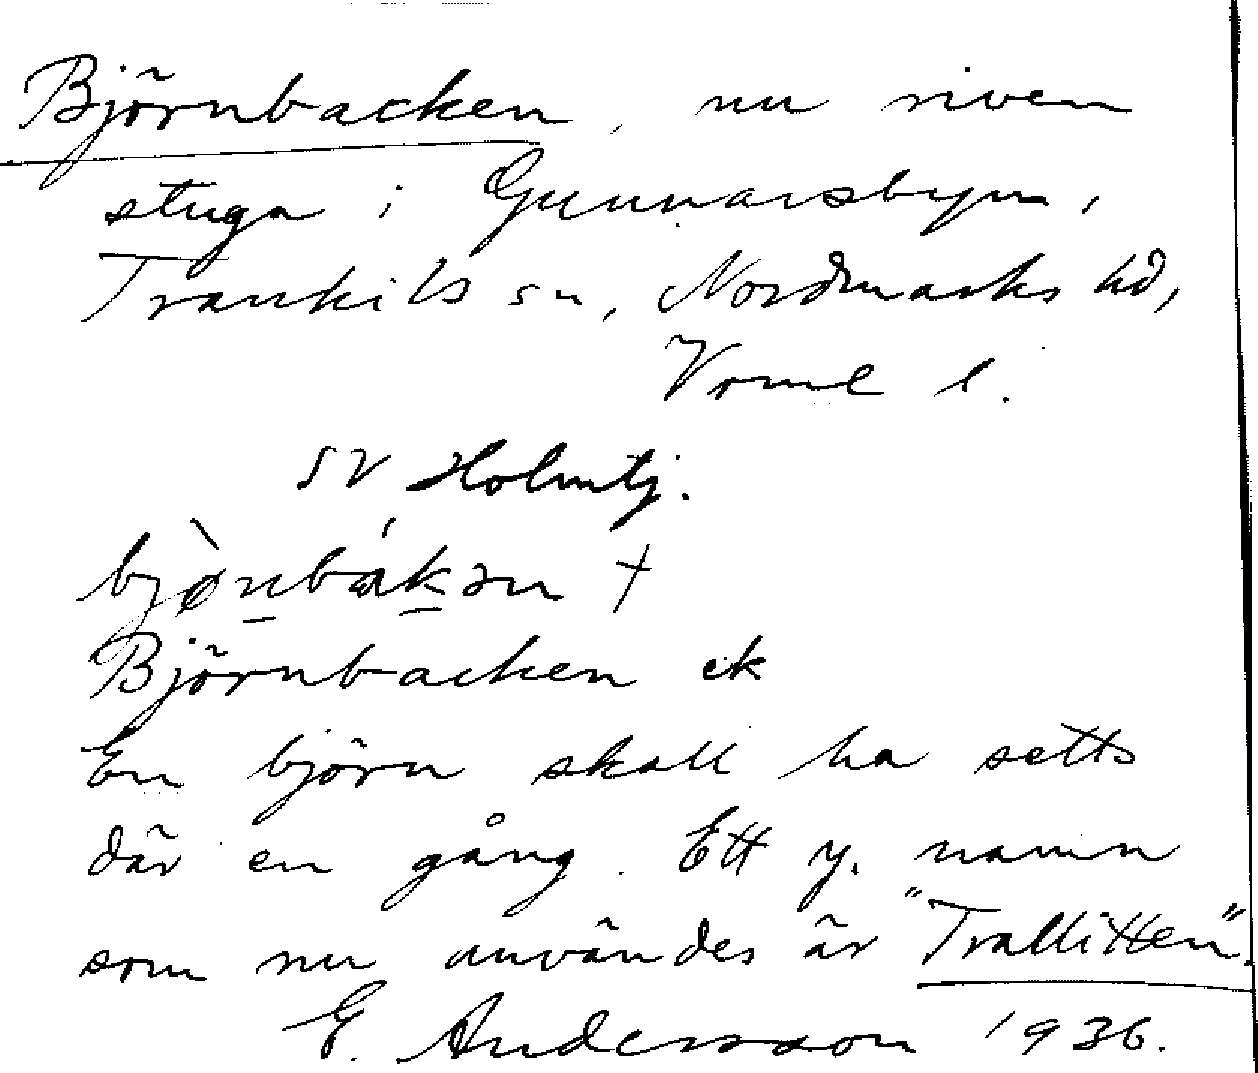 Björnbacken, nu riven
stuga i Gunnarsbyn,
Trankils sn, Nordmarks hd,
Verml l.
SV Holmtj.
bjø̀n̠bák̠ən +
Björnbacken ek
En björn skall ha setts
där en gång. Ett y. namn
som nu användes är "Trallitten".
E. Andersson 1936.